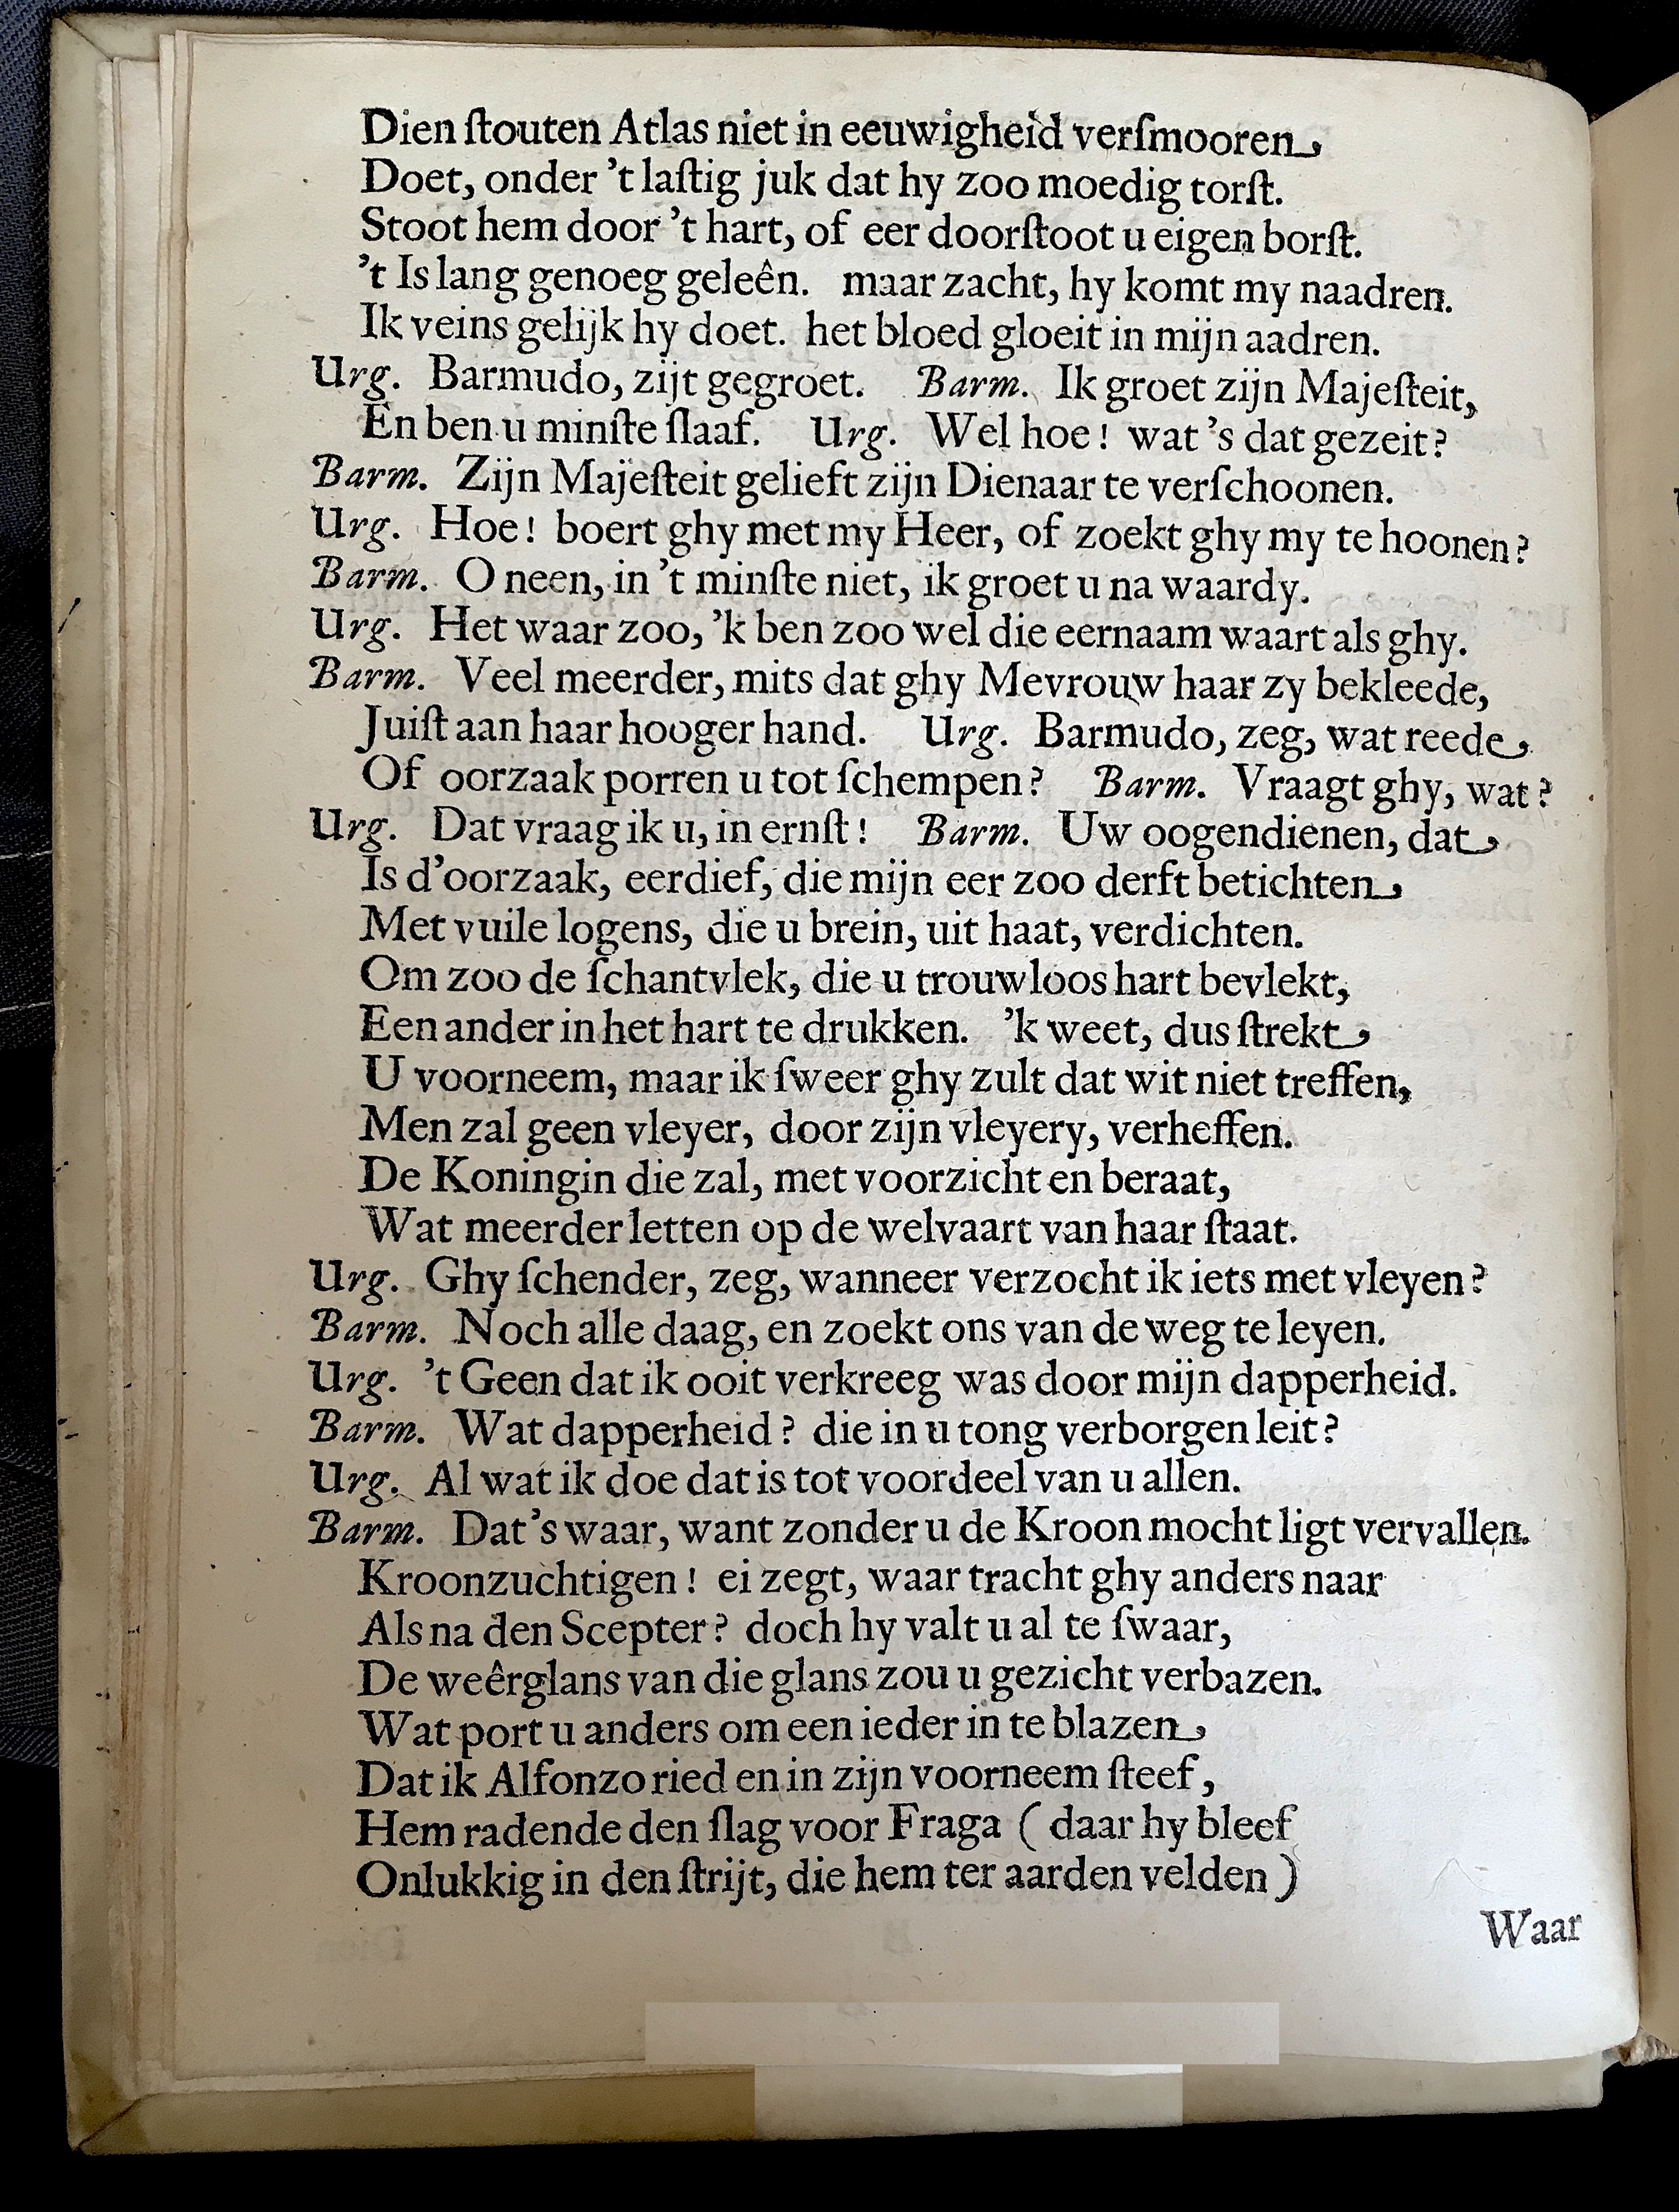 Dien ſtouten Atlas niet in eeuwigheid verſmooren
Doet, onder 't laſtig juk dat hy zoo moedig torſt.
Stoot hem door 't hart, of eer doorſtoot u eigen borſt.
't Is lang genoeg geleên. maar zacht, hy komt my naadren.
Ik veins gelijk hy doet. het bloed gloeit in mijn aadren.
Urg. Barmudo, zijt gegroet. Barm. Ik groet zijn Majeſteit,
En ben u minſte ſlaaf. Urg. Wel hoe! wat 's dat gezeit?
Barm. Zijn Majeſteit gelieft zijn Dienaar te verſchoonen.
Urg. Hoe! boert ghy met my Heer, of zoekt ghy my te hoonen?
Barm. O neen, in 't minſte niet, ik groet u na waardy.
Urg. Het waar zoo, 'k ben zoo wel die eernaam waart als ghy.
Barm. Veel meerder, mits dat ghy Mevrouw haar zy bekleede,
Juiſt aan haar hooger hand. Urg. Barmudo, zeg, wat reede
Of oorzaak porren u tot ſchempen? Barm. Vraagt ghy, wat?
Urg. Dat vraag ik u, in ernſt! Barm. Uw oogendienen, dat
Is d'oorzaak, eerdief, die mijn eer zoo derft betichten
Met vuile logens, die u brein, uit haat, verdichten.
Om zoo de ſchantvlek, die u trouwloos hart bevlekt,
Een ander in het hart te drukken. 'k weet, dus ſtrekt
U voorneem, maar ik ſweer ghy zult dat wit niet treffen,
Men zal geen vleyer, door zijn vleyery, verheffen.
De Koningin die zal, met voorzicht en beraat,
Wat meerder letten op de welvaart van haar ſtaat.
Urg. Ghy ſchender, zeg, wanneer verzocht ik iets met vleyen?
Barm. Noch alle daag, en zoekt ons van de weg te leyen.
Urg. 't Geen dat ik ooit verkreeg was door mijn dapperheid.
Barm. Wat dapperheid? die in u tong verborgen leit?
Urg. Al wat ik doe dat is tot voordeel van u allen.
Barm. Dat's waar, want zonder u de Kroon mocht ligt vervallen.
Kroonzuchtigen! ei zegt, waar tracht ghy anders naar
Als na den Scepter? doch hy valt u al te ſwaar,
De weêrglans van die glans zou u gezicht verbazen.
Wat port u anders om een ieder in te blazen
Dat ik Alfonzo ried en in zijn voorneem ſteef,
Hem radende den ſlag voor Fraga ( daar hy bleef
Onlukkig in den ſtrijt, die hem ter aarden velden )
Waar